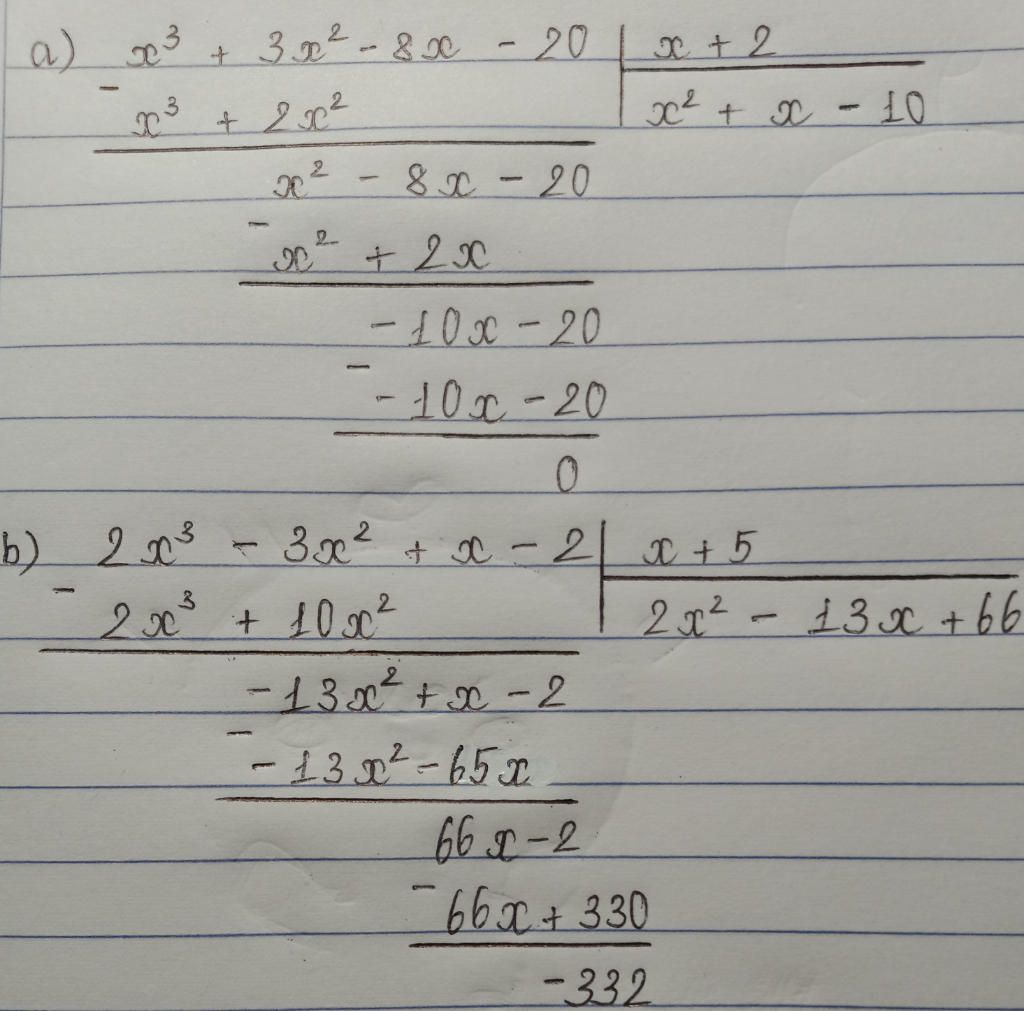 a) x³ + 3x² - 8x - 20 | x + 2
- x³ + 2x² | x² + x - 10
x² - 8x - 20
- x² + 2x
- 10x - 20
- - 10x - 20
0
b) 2x³ - 3x² + x - 2 | x + 5
- 2x³ + 10x² | 2x² - 13x + 66
- 13x² + x - 2
- - 13x² - 65x
66x - 2
- 66x + 330
- 332